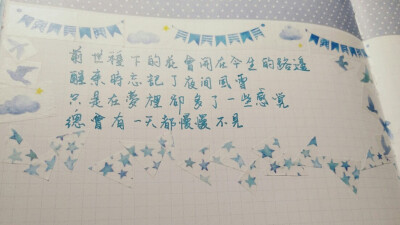 前世種下的花會開在今生的路邊
醒來時忘記了夜間風雪
只是在夢裡卻多了一些感覺
總會有一天都慢慢不見